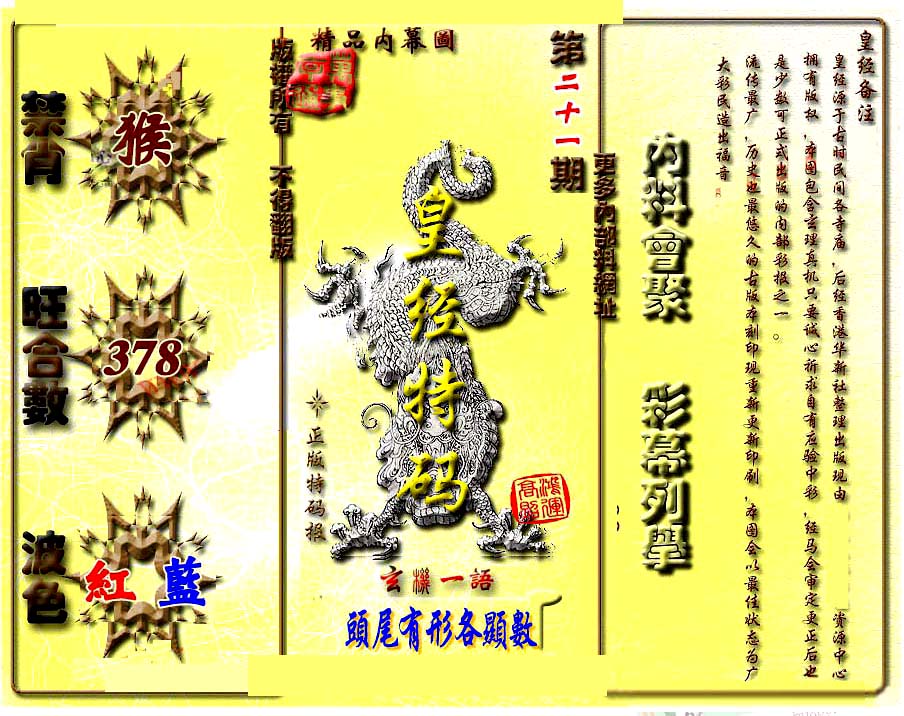 精品内幕圖
版權所有 不得翻版
第二十一期
更多內部料網址
禁肖
猴
旺合數
378
波色
紅 藍
皇经特码
正版特码报
鴻運高照
玄機一語
頭尾有形各顯數
內料會聚
彩幕列舉
皇经备注
皇经源于古时民间各寺庙，后经香港华新社整理出版现由 资源中心
拥有版权，本图包含玄理真机只要诚心祈求自有应验中彩，经马会审定更正后也
是少数可正式出版的内部彩报之一。
流传最广，历史也最悠久的古版本刻印现重新更新印刷，本图会以最佳状态为广
大彩民造出福音